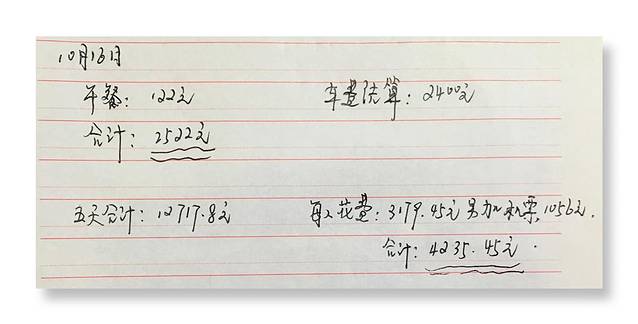 10月13日
午餐：122元 车费结算：2400元
合计：2522元
五天合计：12717.8元 每人花费：3179.45元 另加机票，1056元．
合计：4235.45元．